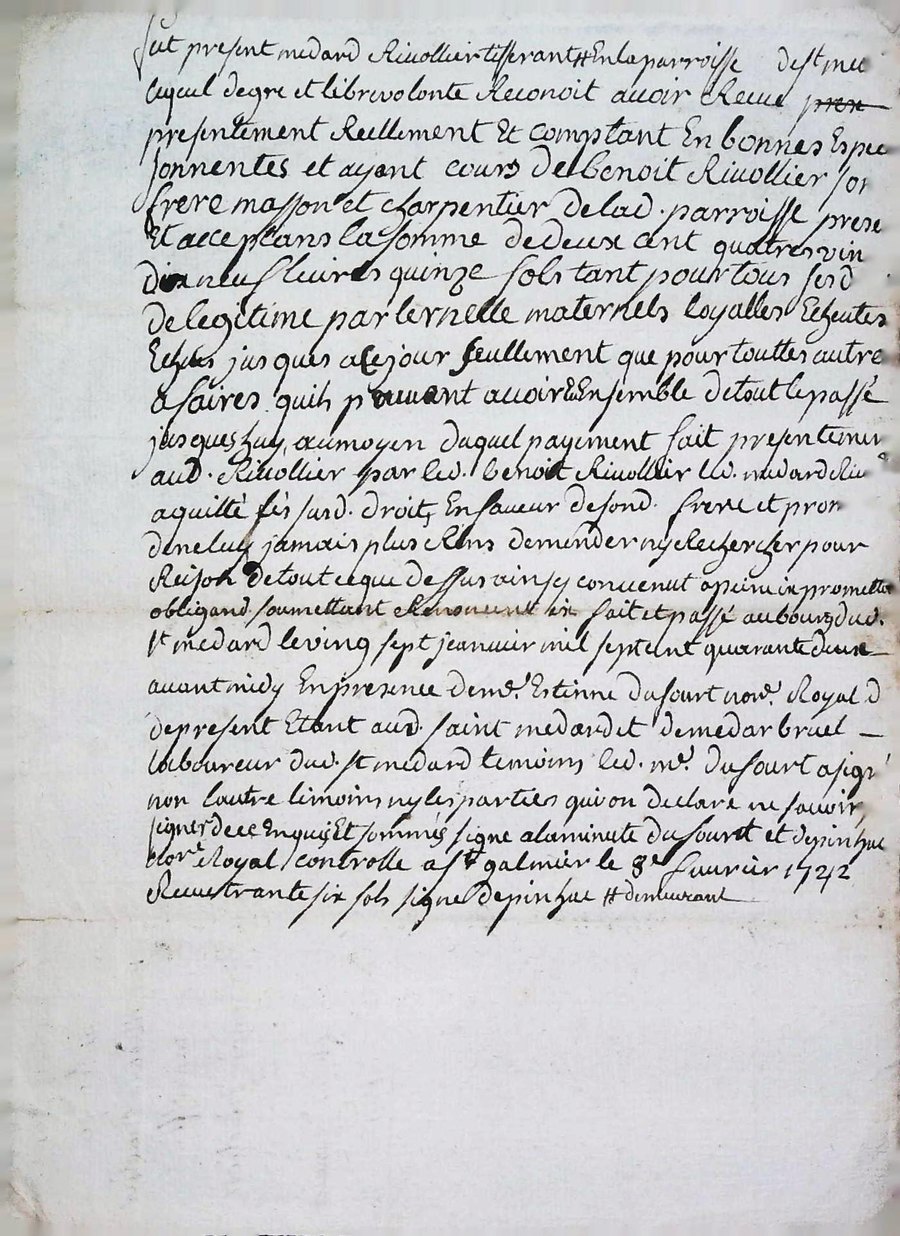 fut present medard Rivollier tisserant # En la parroisse de st me
lequel de gre et libre volonte Reconoit avoir Receu pres
presentement Reellement Et comptant En bonnes Espec
sonnentes et ayant cours de benoit Rivollier son
frere masson et charpentier de lad. parroisse prese
Et acceptans la somme de deux cent quatres vin
dix neuf livires quinze sols tant pour tous sesd
de legitime paternelle maternels loyalles Echeutes
Echus jusques a ce jour seullement que pour touttes autre
afaires quils peuvent avoir Eu Ensemble de tout le passé
jusques huy, au moyen duquel payement fait presentemen
aud. Rivollier par led. benoit Rivollier led. medard Riv
aquitté ses susd. droit, En faveur de sond. frere et prom
de ne luy jamais plus Riens demender ny Rechercher pour
Reison de tout ce que dessus ainsy convenut a peine ix promettan
obligand soumettant Renoncent ix fait et passé au bourg dud.
st medard le ving sept jeanvier mil sept cent quarante deux
avant midy En presence de me. Estinne dufourt nore. Royal d
de present Etant aud. saint medard et de medar bruel
laboureur dud. st medard temoins led. me. dufourt a signé
non lautre temoins ny les parties qui on declare ne savoir
signer de ce Enquis Et sommés signe a la minute dufourt et depinhac
nore. Royal controlle a st galmier le 8e fevrier 1742
Receu trante six sols signe depinhac # demeurant